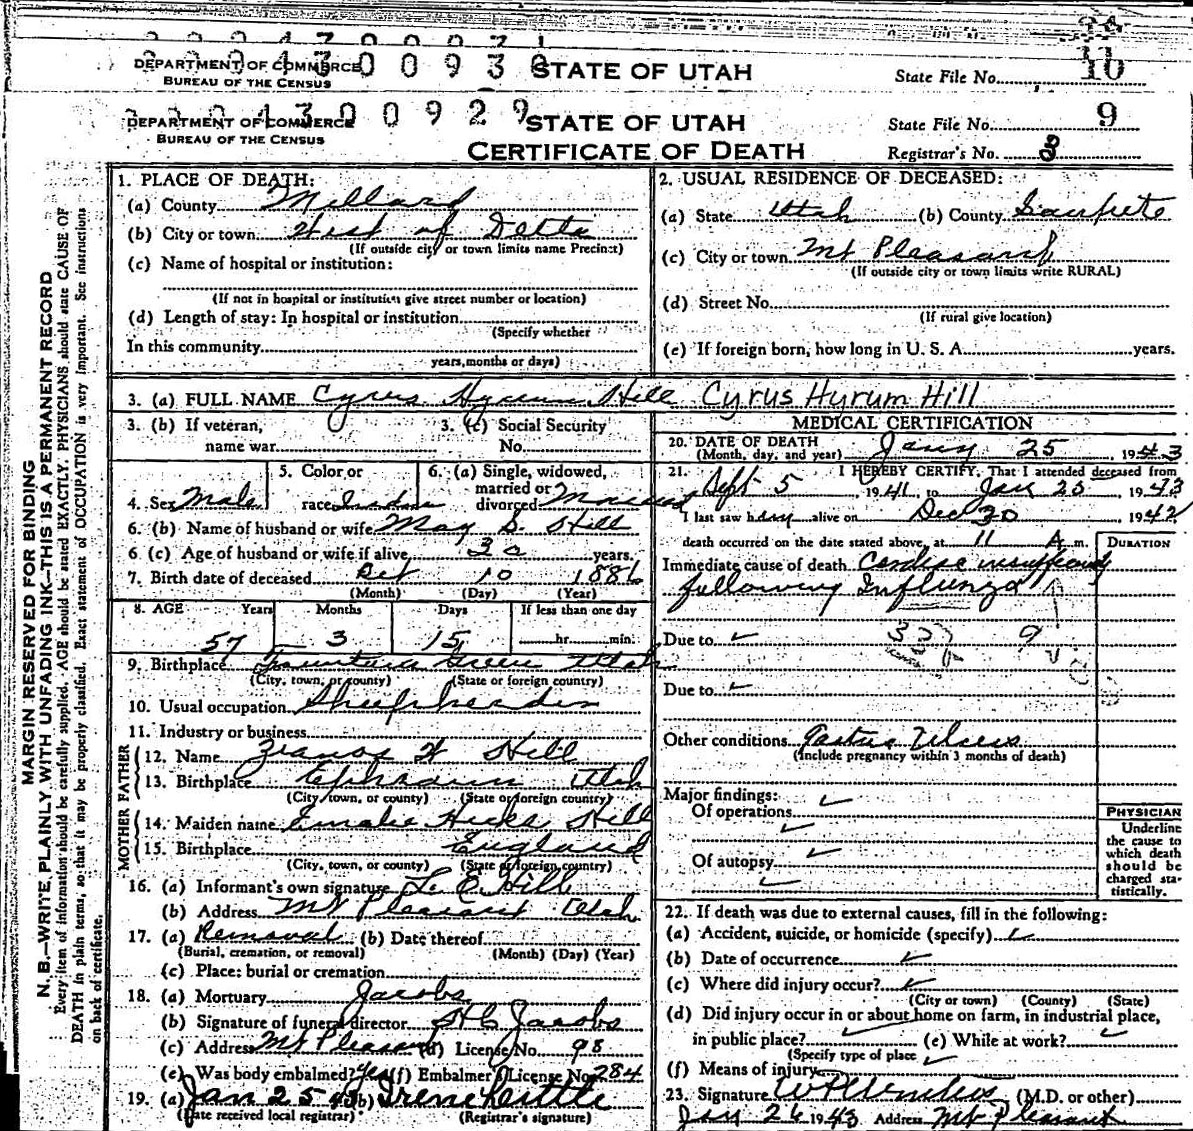 DEPARTMENT OF COMMERCE
BUREAU OF THE CENSUS
STATE OF UTAH
State File No. 10
DEPARTMENT OF COMMERCE
BUREAU OF THE CENSUS
00929
STATE OF UTAH
CERTIFICATE OF DEATH
State File No. 9
Registrar's No. 3
MARGIN RESERVED FOR BINDING
N. B.—WRITE PLAINLY WITH UNFADING INK—THIS IS A PERMANENT RECORD
Every item of information should be carefully supplied. AGE should be stated EXACTLY. PHYSICIANS should state CAUSE OF
DEATH in plain terms, so that it may be properly classified. Exact statement of OCCUPATION is very important. See instructions
on back of certificate.
1. PLACE OF DEATH:
(a) County Millard
(b) City or town West of Delta
(If outside city or town limits name Precinct)
(c) Name of hospital or institution:
(If not in hospital or institution give street number or location)
(d) Length of stay: In hospital or institution
(Specify whether
In this community
years, months or days)
2. USUAL RESIDENCE OF DECEASED:
(a) State Utah (b) County Sanpete
(c) City or town Mt Pleasant
(If outside city or town limits write RURAL)
(d) Street No.
(If rural give location)
(e) If foreign born, how long in U. S. A. years.
3. (a) FULL NAME Cyrus Hyrum Hill Cyrus Hyrum Hill
3. (b) If veteran, name war
3. (c) Social Security No.
4. Sex Male
5. Color or race
6. (a) Single, widowed, married or divorced Married
6. (b) Name of husband or wife May S. Hill
6 (c) Age of husband or wife if alive years.
7. Birth date of deceased Oct 10 1886
(Month) (Day) (Year)
8. AGE Years Months Days If less than one day
57 3 15 hr. min.
9. Birthplace Fountain Green Utah
(City, town, or county) (State or foreign country)
10. Usual occupation Sheepherder
11. Industry or business
FATHER
12. Name Zianos H Hill
13. Birthplace Ephraim Utah
(City, town, or county) (State or foreign country)
MOTHER
14. Maiden name Hicks Hill
15. Birthplace England
(City, town, or county) (State or foreign country)
16. (a) Informant's own signature L. E. Hill
(b) Address Mt Pleasant Utah
17. (a) Removal (b) Date thereof
(Burial, cremation, or removal) (Month) (Day) (Year)
(c) Place: burial or cremation
18. (a) Mortuary Jacobs
(b) Signature of funeral director H C Jacobs
(c) Address Mt Pleasant (d) License No. 98
(e) Was body embalmed? Yes (f) Embalmer's License No. 284
19. (a) Jan 25 43 (b) Irene Little
(Date received local registrar) (Registrar's signature)
MEDICAL CERTIFICATION
20. DATE OF DEATH Jany 25, 1943
(Month, day, and year)
21. I HEREBY CERTIFY, That I attended deceased from
Sept 5 1941, to Jan 25 1943
I last saw him alive on Dec 30 1942
death occurred on the date stated above, at 11 A m.
DURATION
Immediate cause of death Cardiac insufficiency
following Influenza
Due to
Due to
Other conditions
(Include pregnancy within 3 months of death)
Major findings:
Of operations
Of autopsy
PHYSICIAN
Underline
the cause to
which death
should be
charged sta-
tistically.
22. If death was due to external causes, fill in the following:
(a) Accident, suicide, or homicide (specify)
(b) Date of occurrence
(c) Where did injury occur?
(City or town) (County) (State)
(d) Did injury occur in or about home on farm, in industrial place,
in public place? (e) While at work?
(Specify type of place
(f) Means of injury
23. Signature (M.D. or other)
Jan 26 1943 Address Mt Pleasant